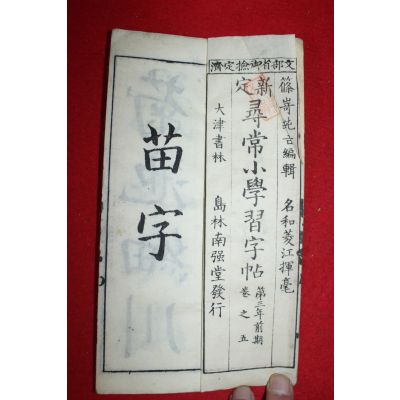 文部省御撿定濟
篠嵜純吉編輯 名和菱江揮毫
新定尋常小學習字帖 第三年前期 卷之五
大津書林 島林南强堂發行
苗字